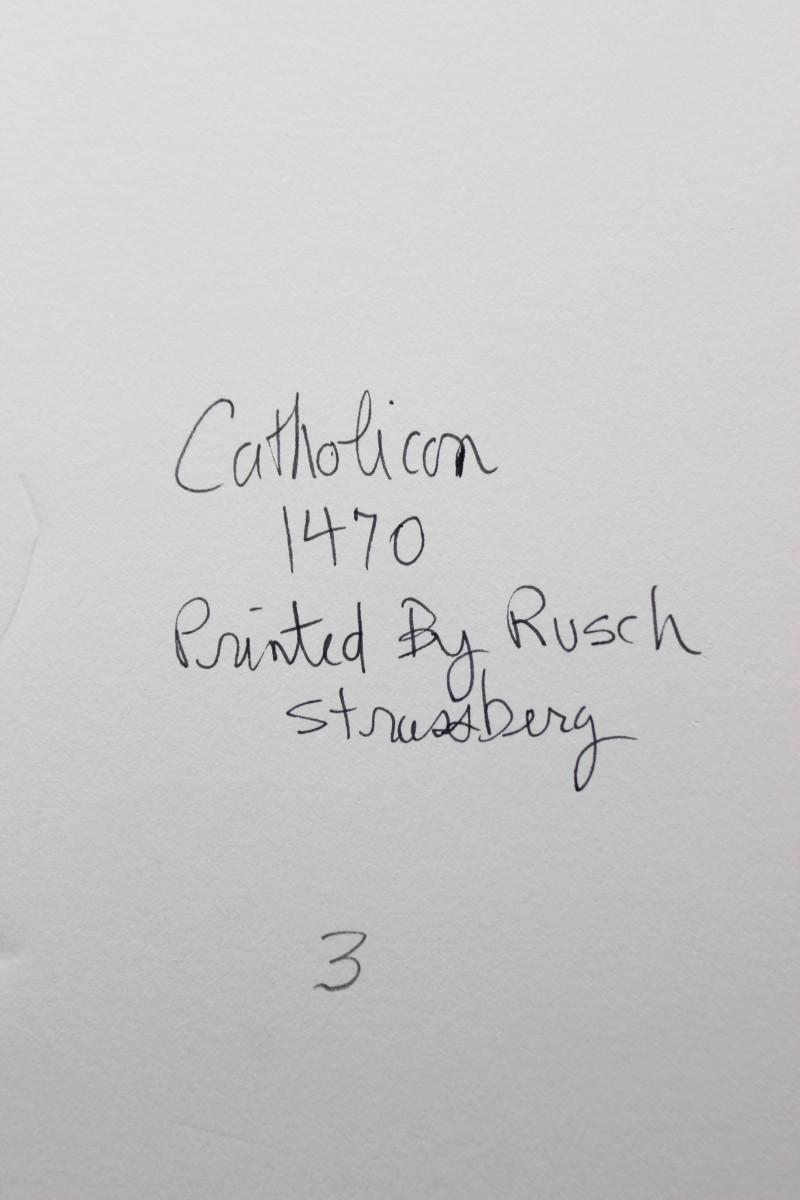 Catholicon
1470
Printed By Rusch
Strassberg
3